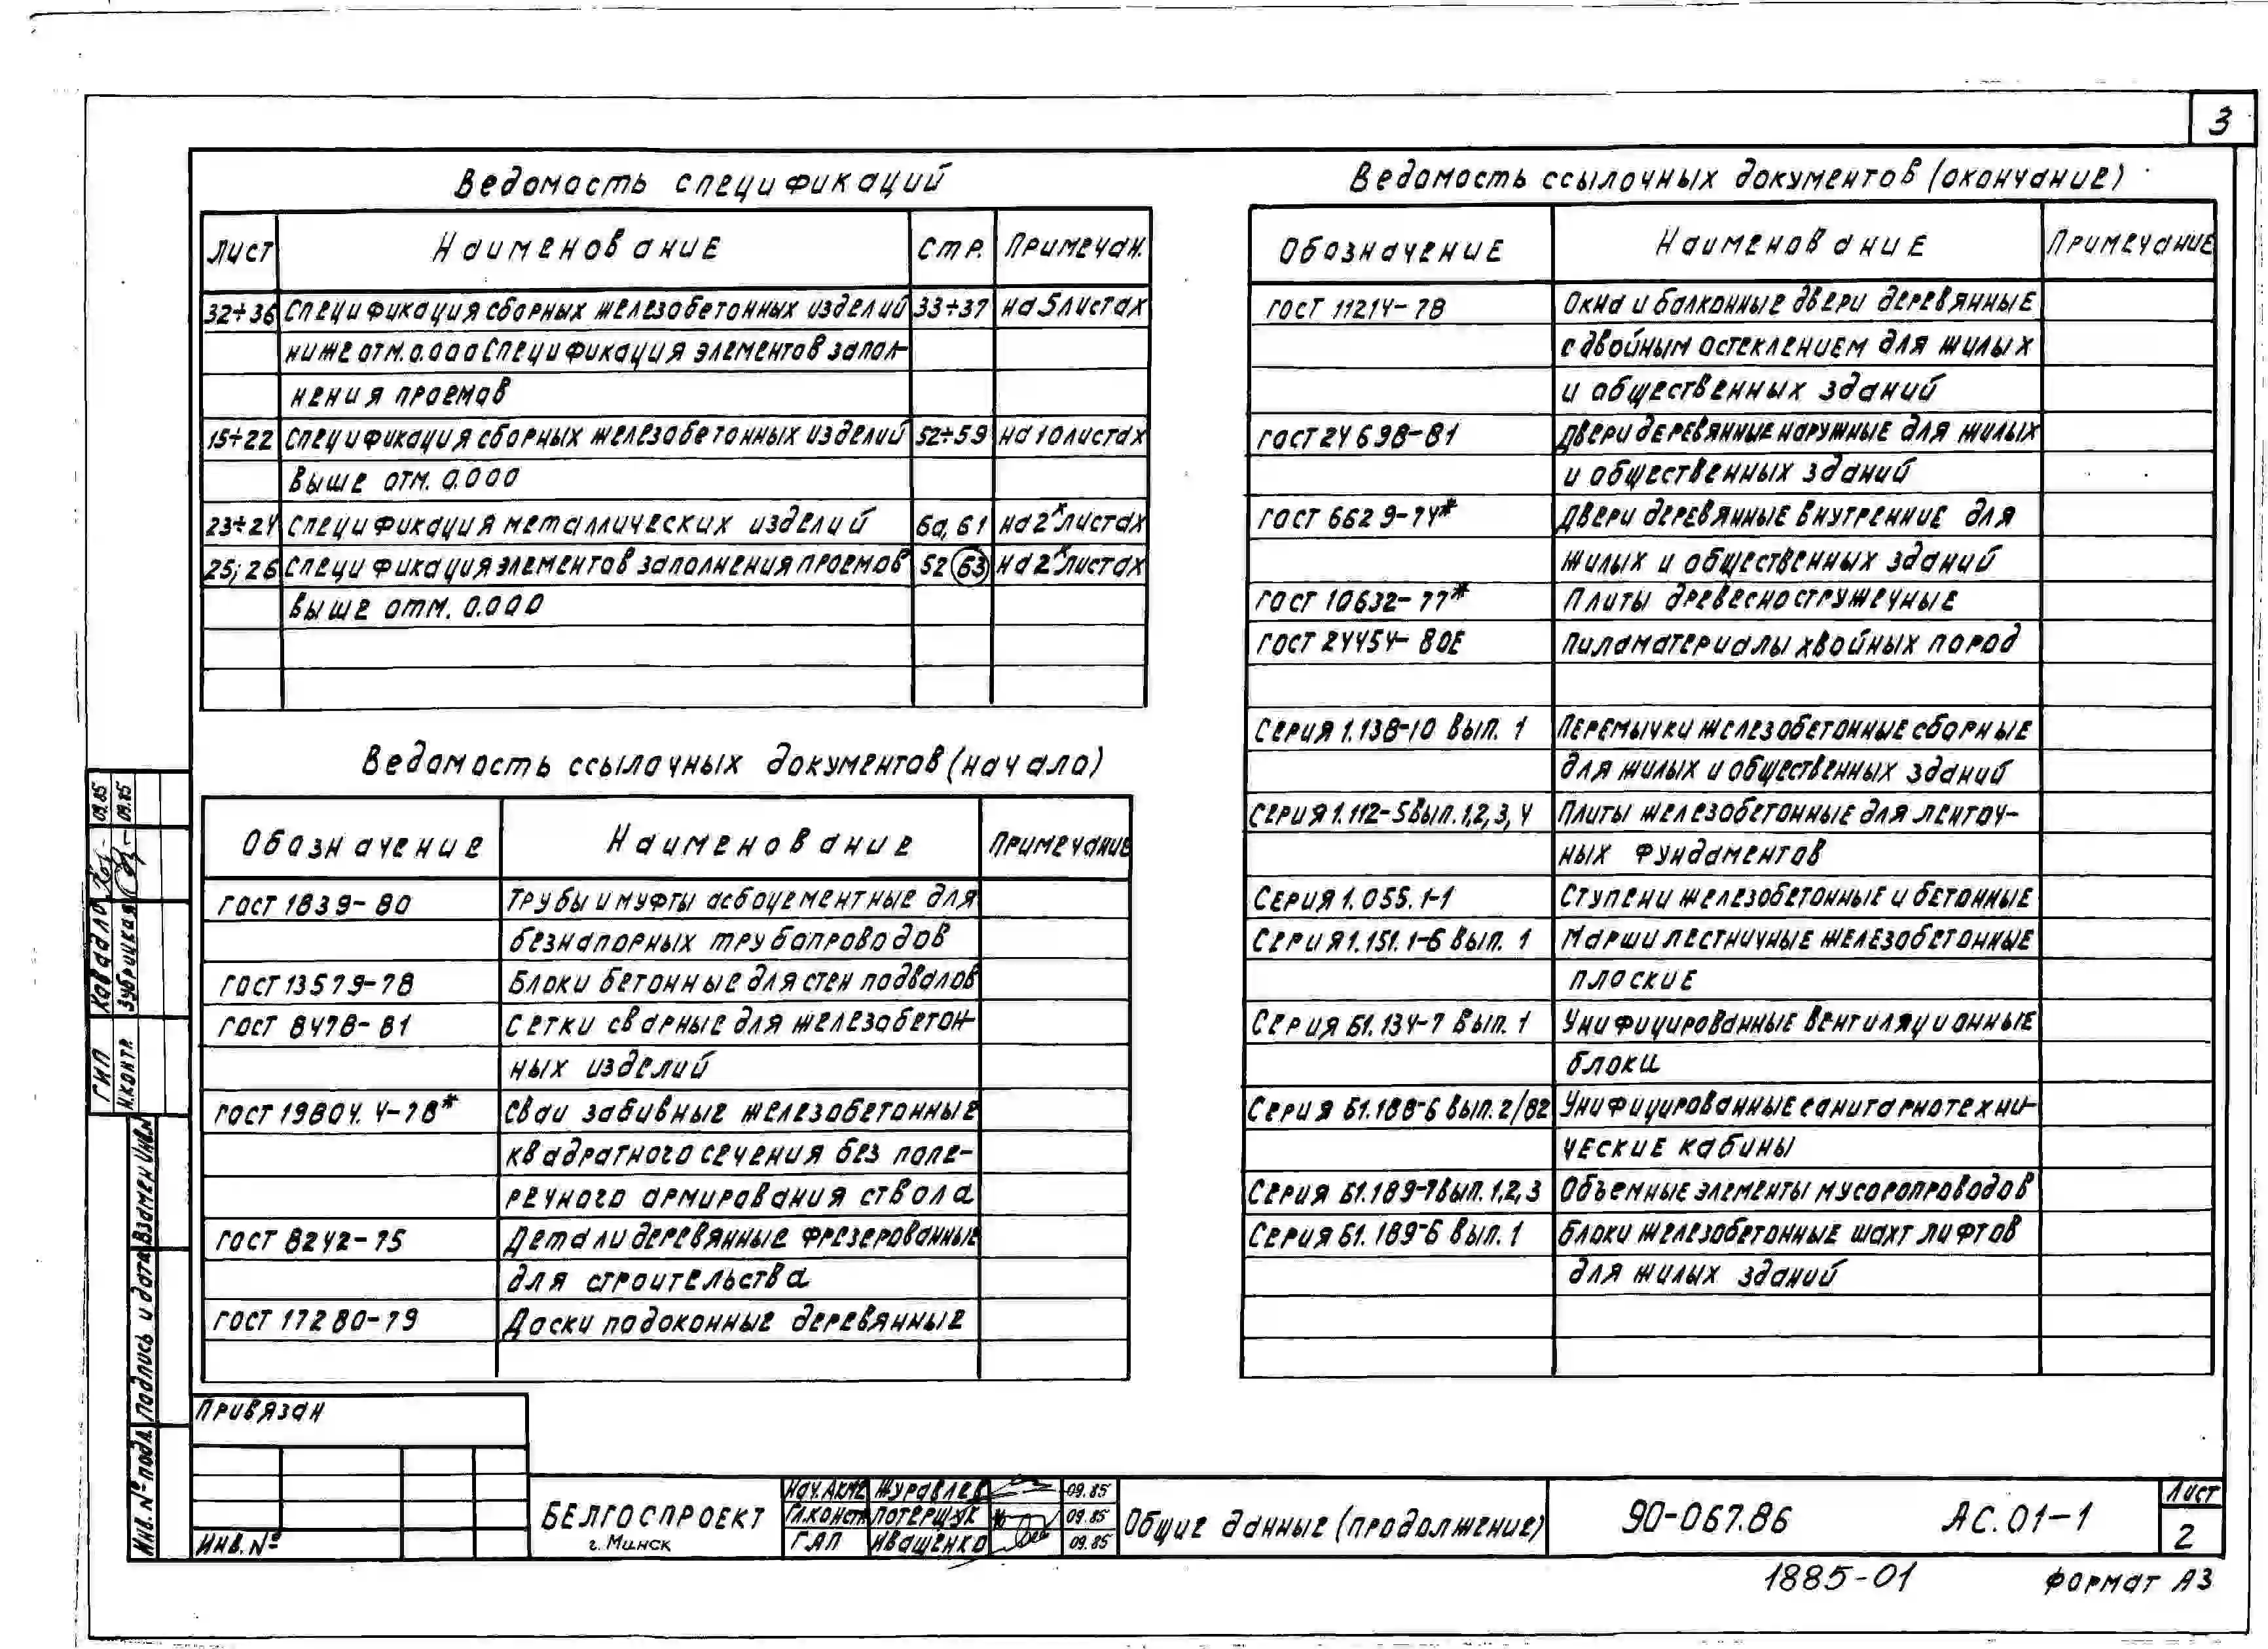 3
Ведомость спецификаций
Лист Наименование Стр. Примечан.
32÷36 Спецификация сборных железобетонных изделий 33÷37 на 5 листах
ниже отм. 0.000 Спецификация элементов запол-
нения проемов
15÷22 Спецификация сборных железобетонных изделий 52÷59 на 10 листах
выше отм. 0.000
23÷24 Спецификация металлических изделий 60, 61 на 2х листах
25; 26 Спецификация элементов заполнения проемов 52 63 на 2х листах
выше отм. 0.000
Ведомость ссылочных документов (начало)
Обозначение Наименование Примечание
ГОСТ 1839-80 Трубы и муфты асбоцементные для
безнапорных трубопроводов
ГОСТ 13579-78 Блоки бетонные для стен подвалов
ГОСТ 8478-81 Сетки сварные для железобетон-
ных изделий
ГОСТ 19804.4-78* Сваи забивные железобетонные
квадратного сечения без попе-
речного армирования ствола
ГОСТ 8242-75 Детали деревянные фрезерованные
для строительства
ГОСТ 17280-79 Доски подоконные деревянные
Ведомость ссылочных документов (окончание)
Обозначение Наименование Примечание
ГОСТ 11214-78 Окна и балконные двери деревянные
с двойным остеклением для жилых
и общественных зданий
ГОСТ 24698-81 Двери деревянные наружные для жилых
и общественных зданий
ГОСТ 6629-74* Двери деревянные внутренние для
жилых и общественных зданий
ГОСТ 10632-77* Плиты древесностружечные
ГОСТ 24454-80Е Пиломатериалы хвойных пород
Серия 1.138-10 вып. 1 Перемычки железобетонные сборные
для жилых и общественных зданий
Серия 1.112-5 вып. 1,2,3,4 Плиты железобетонные для ленточ-
ных фундаментов
Серия 1.055.1-1 Ступени железобетонные и бетонные
Серия 1.151.1-6 вып. 1 Марши лестничные железобетонные
плоские
Серия Б1.134-7 вып. 1 Унифицированные вентиляционные
блоки
Серия Б1.188-6 вып. 2/82 Унифицированные санитарнотехни-
ческие кабины
Серия Б1.189-7 вып. 1,2,3 Объемные элементы мусоропроводов
Серия Б1.189-6 вып. 1 Блоки железобетонные шахт лифтов
для жилых зданий
ГИП Ковадло 09.85
Н.контр. Зубрицкая 09.85
Взамен Инв.№
Подпись и дата
Инв. № подл.
Привязан
Инв. №
БЕЛГОСПРОЕКТ
г. Минск
Нач.АКМ2 Журавлев 09.85
Гл.конст. Потерщук 09.85
ГАП Иващенко 09.85
Общие данные (продолжение)
90-067.86 АС.01-1
Лист
2
1885-01
Формат А3